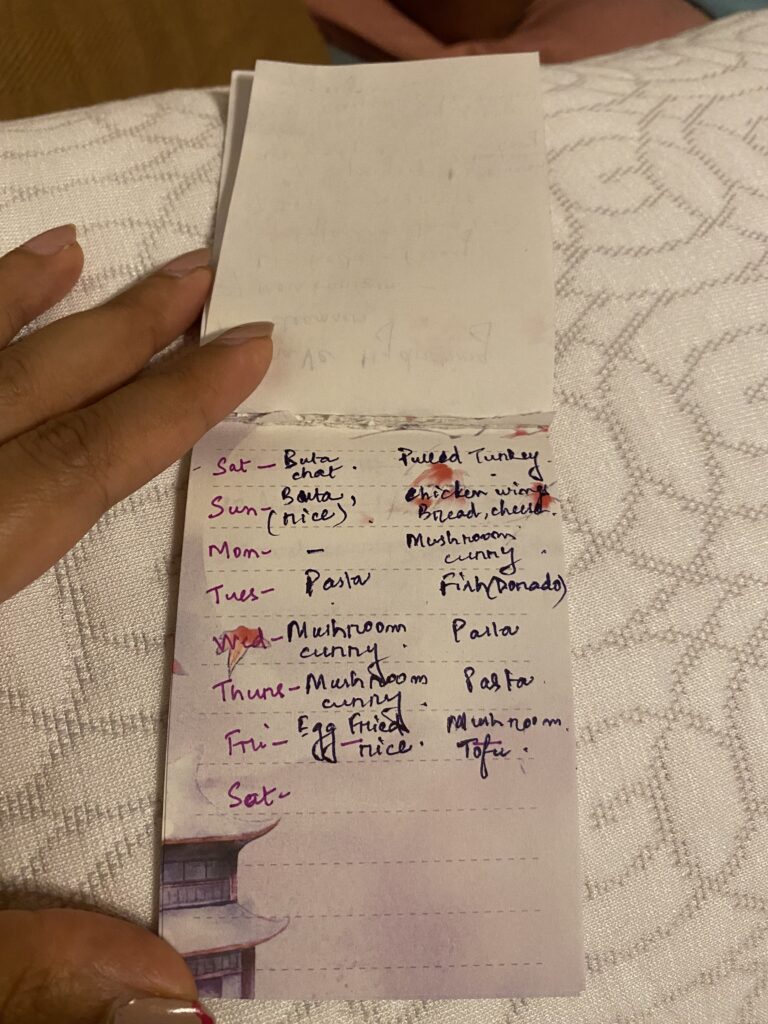 Sat - Buta Pulled Turkey.
chat.
Sun - Buta, chicken wings
(rice). Bread, cheese.
Mon - - Mushroom
curry.
Tues - Pasta Fish (Dorado)
Wed - Mushroom Pasta
curry.
Thurs - Mushroom Pasta.
curry.
Fri - Egg Fried Mushroom.
rice. Tofu.
Sat -